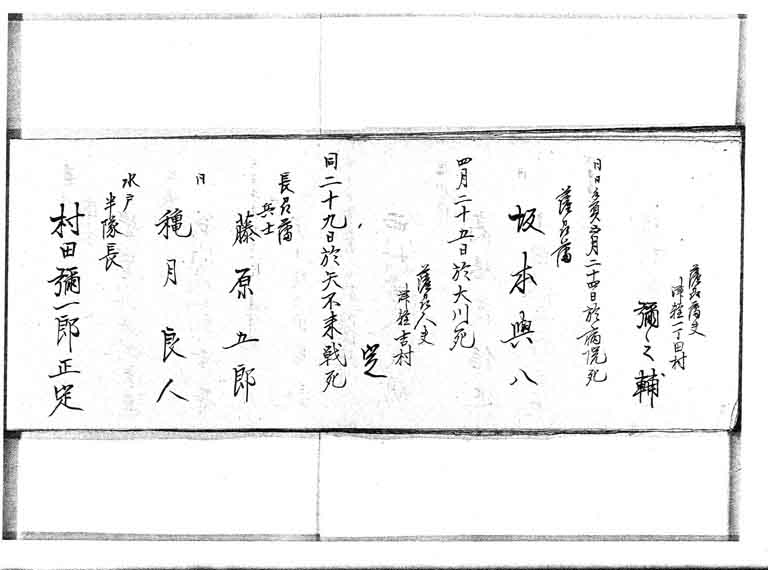 薩州藩夫
津軽一丁田村
彌之輔
同日己亥五月二十四日於病院死
薩州藩
坂本與八
四月二十五日於大川死
薩州人夫
津軽吉村
定
同二十九日於矢不来戦死
長州藩
兵士
藤原五郎
同
穐月良人
水戸
半隊長
村田彌一郎正定